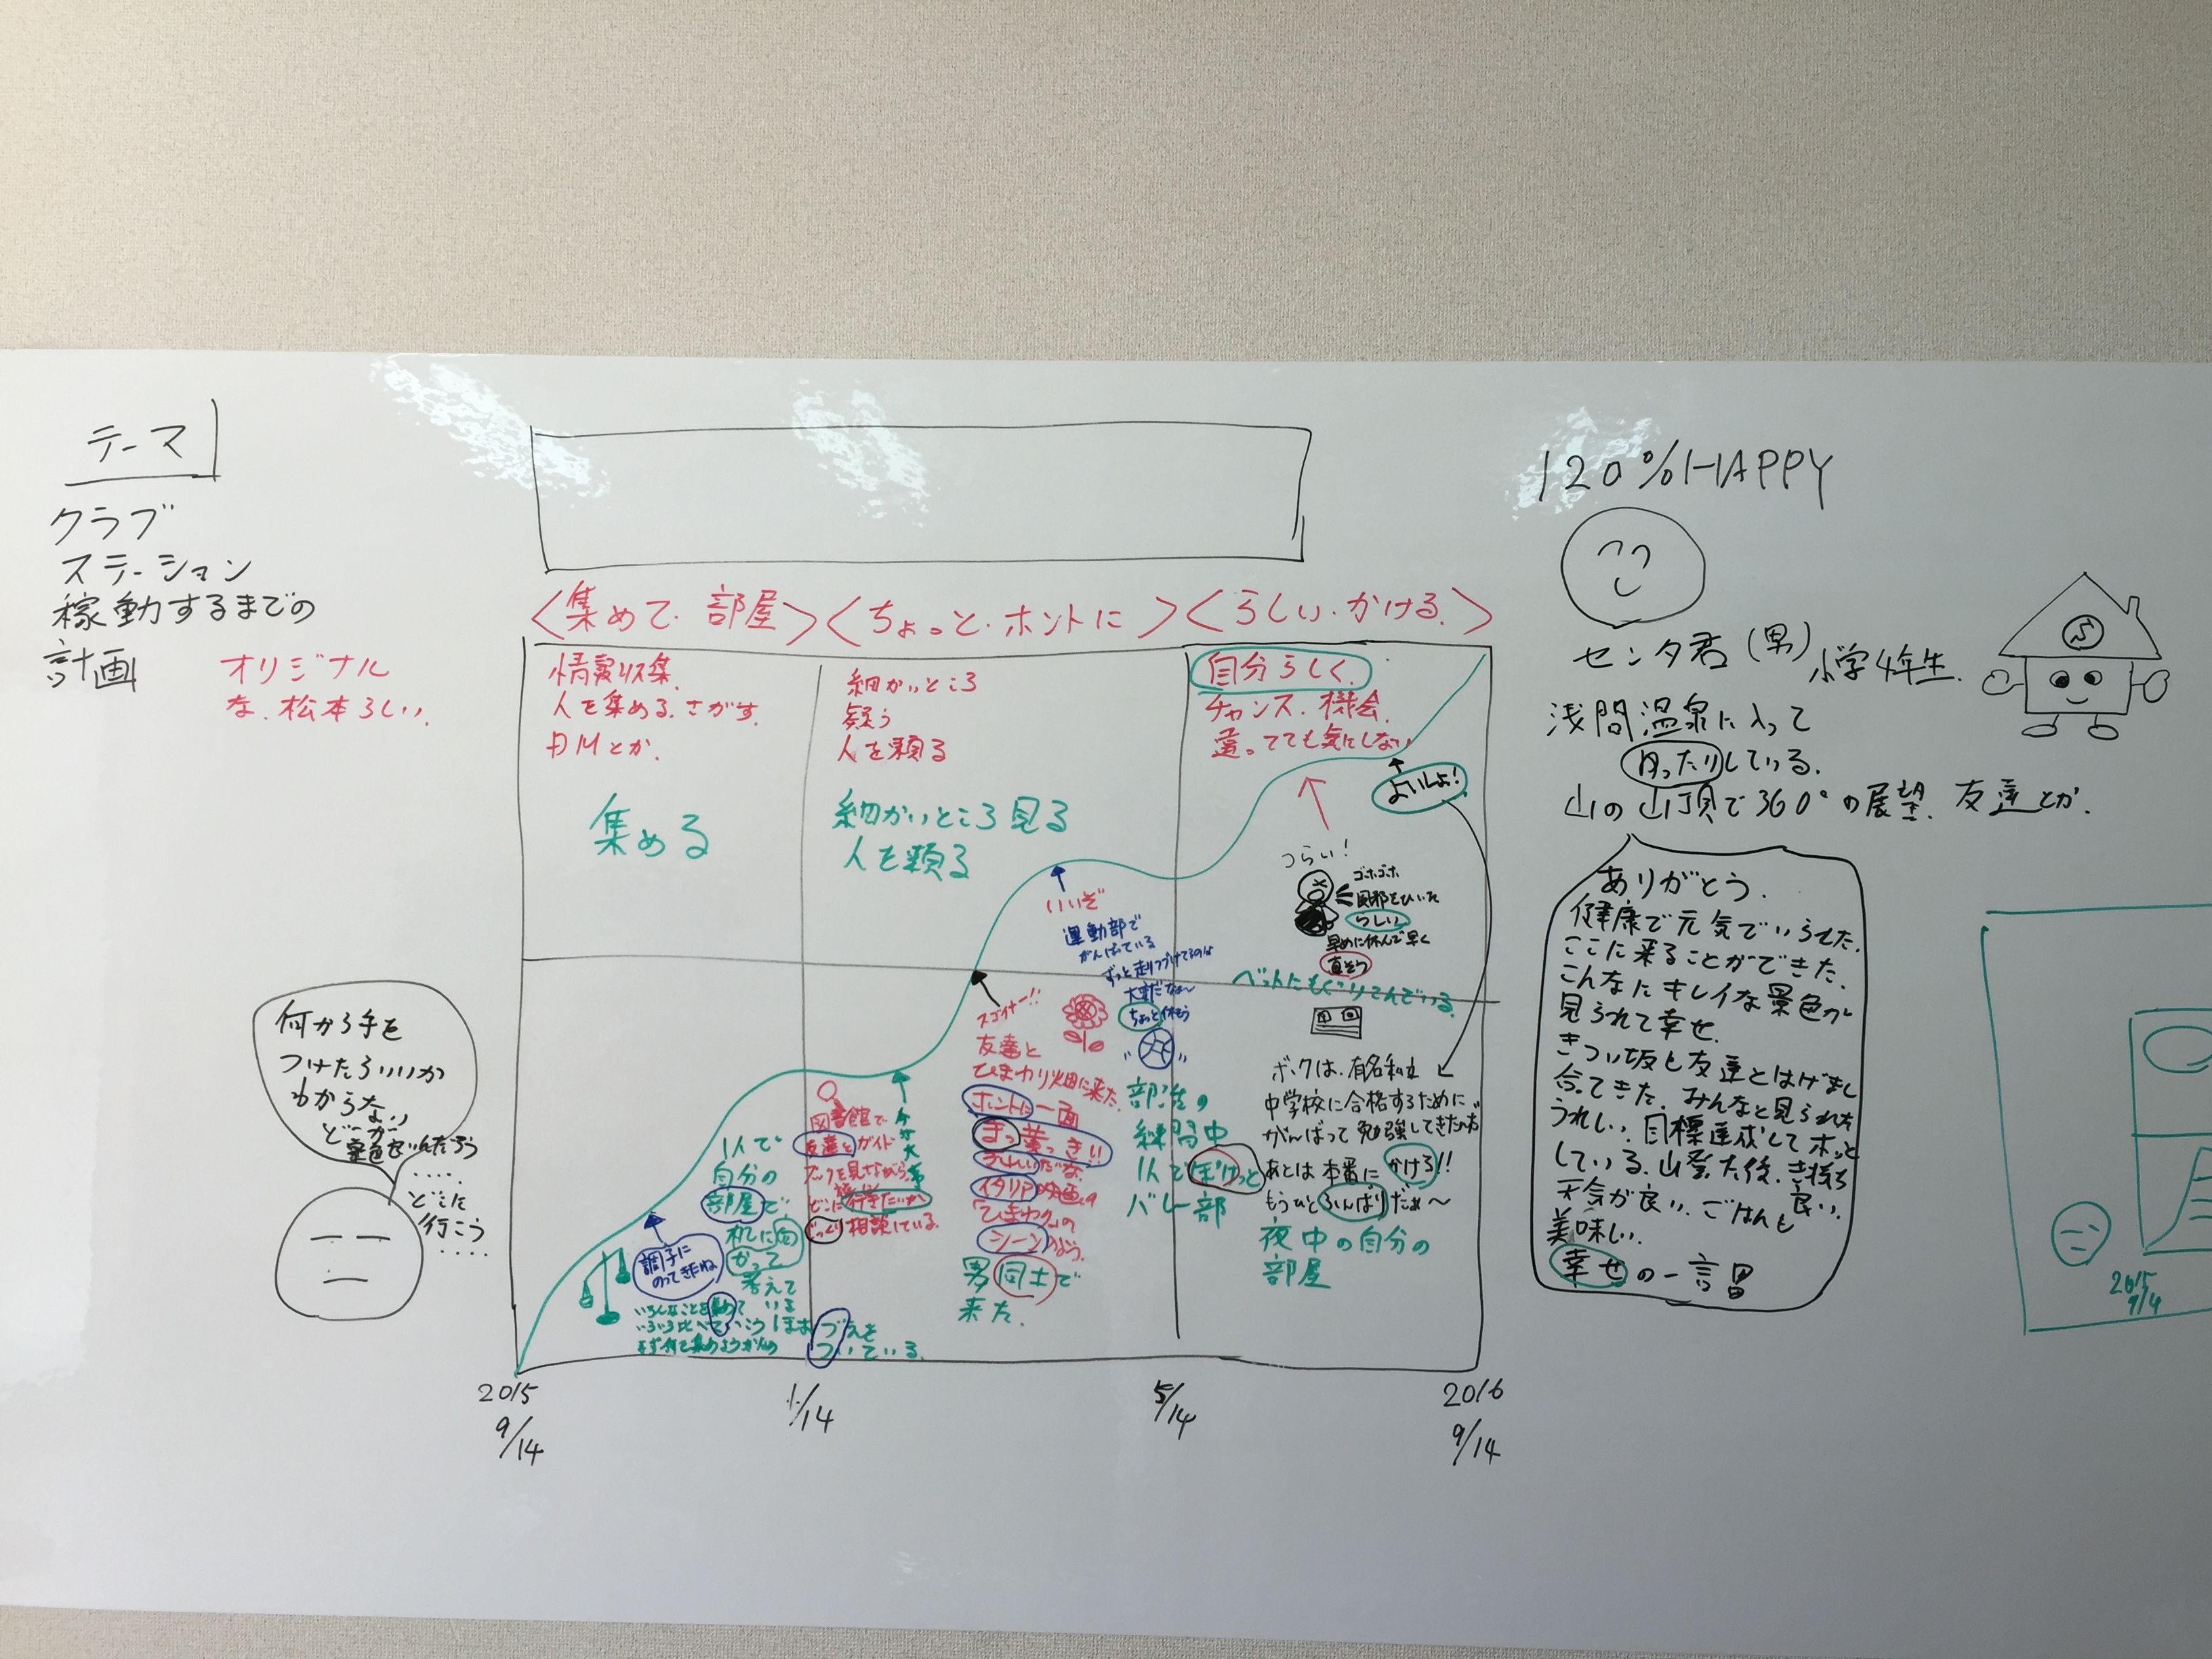 テーマ
クラブ
ステーション
稼動するまでの
計画
オリジナル
な、松本らしい、
何から手を
つけたらいいか
わからない
どーが
景色なんだろう
・・・・
どこに
行こう
・・・・
〈集めて・部屋〉〈ちょっと・ホントに〉〈らしい・かける。〉
情報収集
人を集める、さがす。
日川とか、
集める
細かいところ
疑う
人を頼る
細かいところ見る
人を頼る
自分らしく、
チャンス、機会、
違ってても気にしない
調子に
のってきたね
1人で
自分の
部屋で、
机に向
かって
考えて
いる
いろんなことを集めて
いろいろ比べていこう
まず何を集めよう
ほお づえを
ついている。
図書館で
友達とガイド
ブックを見ながら、
どこに行きたいか
じっくり相談している。
今が大事
スゴイナー!!
友達と
ひまわり畑に来た。
ホントに一面
まっ黄っき!!
きれいだな
イタリア映画の
「ひまわり」の
シーンのよう。
男同士で
来た。
いいぞ
運動部で
がんばっている
ずっと走りつづけてるのは
大変だなぁ〜
ちょっと休もう
部活の
練習中
1人でぼけっと
バレー部
つらい!
ゴホゴホ
風邪をひいた
らしい
早めに休んで早く
直そう
ベットにもぐりこんでいる。
よいしょ!
ボクは、有名私立
中学校に合格するために
がんばって勉強してきた
あとは本番にかける!!
もうひとふんばりだぁ〜
夜中の自分の
部屋
2015
9/14
1/14
5/14
2016
9/14
120%HAPPY
センタ君(男)小学4年生、
S
浅間温泉に入って
ゆったりしている。
山の山頂で360°の展望、友達とか、
ありがとう、
健康で元気でいられた、
ここに来ることができた、
こんなにキレイな景色が
見られて幸せ、
きつい坂も友達とはげまし
合てきた、みんなと見られた
うれしい、目標達成してホッと
している、山登た後、気持ち良い、
天気が良い、ごはんも
美味しい、
幸せの一言
2015
9/4